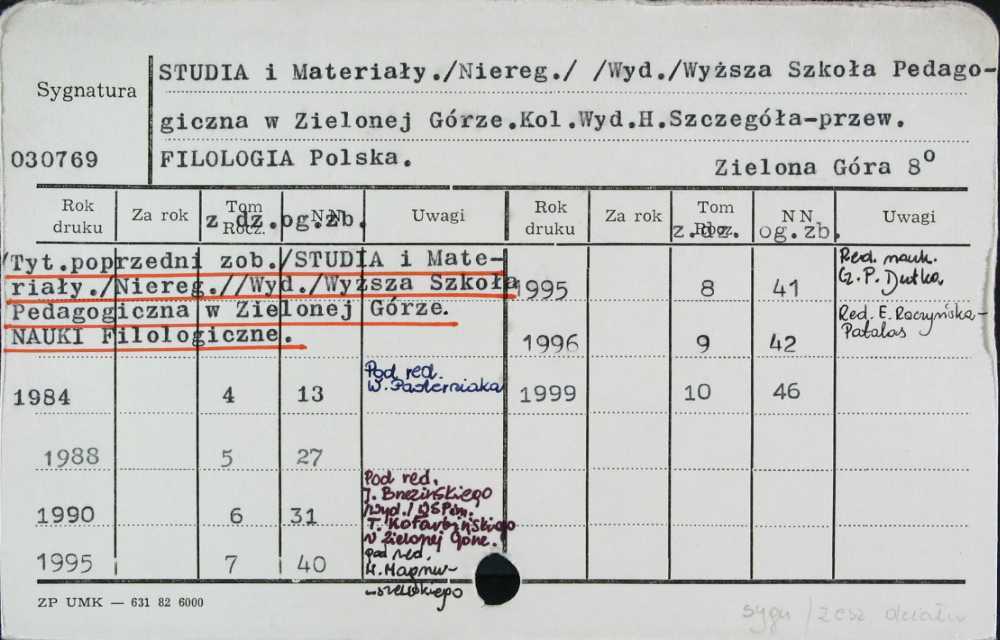 STUDIA i Materiały./Niereg./ /Wyd./Wyższa Szkoła Pedago-
Sygnatura
giczna w Zielonej Górze.Kol.Wyd.H.Szczegóła-przew.
030769
FILOLOGIA Polska.
Zielona Góra 8°
Rok druku Za rok Tom Rocz. NN Uwagi Rok druku Za rok Tom Rocz. NN Uwagi
z.dz. og.zb. z.dz. og.zb.
/Tyt.poprzedni zob./STUDIA i Mate-
riały./Niereg.//Wyd./Wyższa Szkoła
Pedagogiczna w Zielonej Górze.
NAUKI Filologiczne.
1984 4 13 Pod red.
W. Pasterniaka
1988 5 27
1990 6 31 Pod red.
J. Brzezińskiego
/Wyd./ WSP im.
T. Kotarbińskiego
w Zielonej Górze.
1995 7 40 pod red.
1995 8 41 Red. nauk.
Cz. P. Dutka.
1996 9 42 Red. E. Raczyńska-
Patalas
1999 10 46
ZP UMK — 631 82 6000
sygn / zesz działu